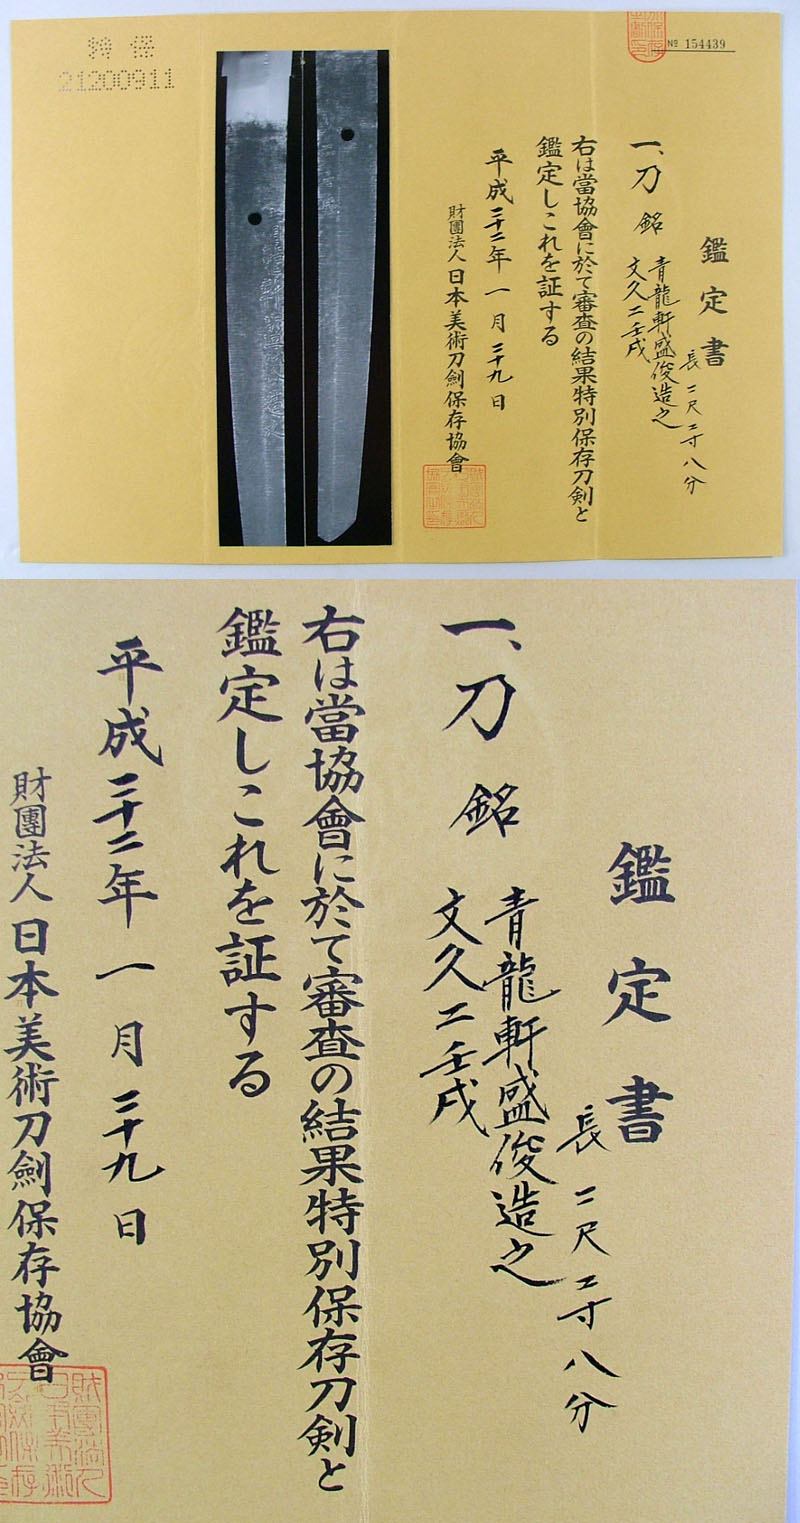 特保
21200911
No 154439
鑑定書
長二尺二寸八分
一、刀 銘 青龍軒盛俊造之
文久二壬戌
右は當協會に於て審査の結果特別保存刀剣と
鑑定しこれを証する
平成二十二年一月二十九日
財團法人日本美術刀劍保存協會
鑑定書
長二尺二寸八分
一、刀 銘 青龍軒盛俊造之
文久二壬戌
右は當協會に於て審査の結果特別保存刀剣と
鑑定しこれを証する
平成二十二年一月二十九日
財團法人日本美術刀劍保存協會